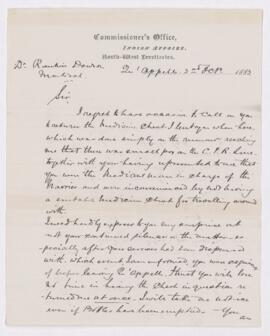 Commissioner's Office,
INDIAN AFFAIRS,
North-West Territories.
Qu'Appelle, 2nd 1883
Dr Rankin Dawson
Montreal
Sir
I regret to have occasion to call on you
to return the Medicine Chest I lent you when here,
which was done simply on the rumour reaching
me that there was on the C.P.R. Line
together with your having represented to me that
you were the Medical man in charge of the
and were inconvenienced by not having
a suitable Medicine Chest for travelling around
with.
I need hardly express to you my surprise at
not your continued silence in the matter es-
pecially after your services had been dispensed
with which event, I am informed, you were
of before leaving Qu'Appelle. I trust you will lose
no time in having the Chest in question re-
turned me at once. I will take as
even if Bottles have been emptied. You